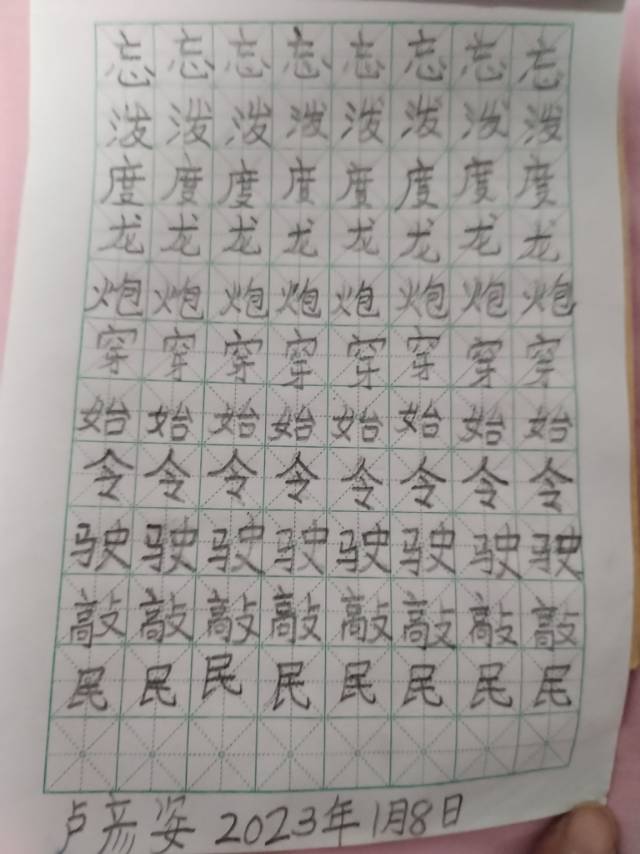 忘忘忘忘忘忘忘忘
泼泼泼泼泼泼泼泼
度度度度度度度度
龙龙龙龙龙龙龙龙
炮炮炮炮炮炮炮炮
穿穿穿穿穿穿穿穿
始始始始始始始始
令令令令令令令令
驶驶驶驶驶驶驶驶
敲敲敲敲敲敲敲敲
民民民民民民民民
卢彦姿 2023年1月8日